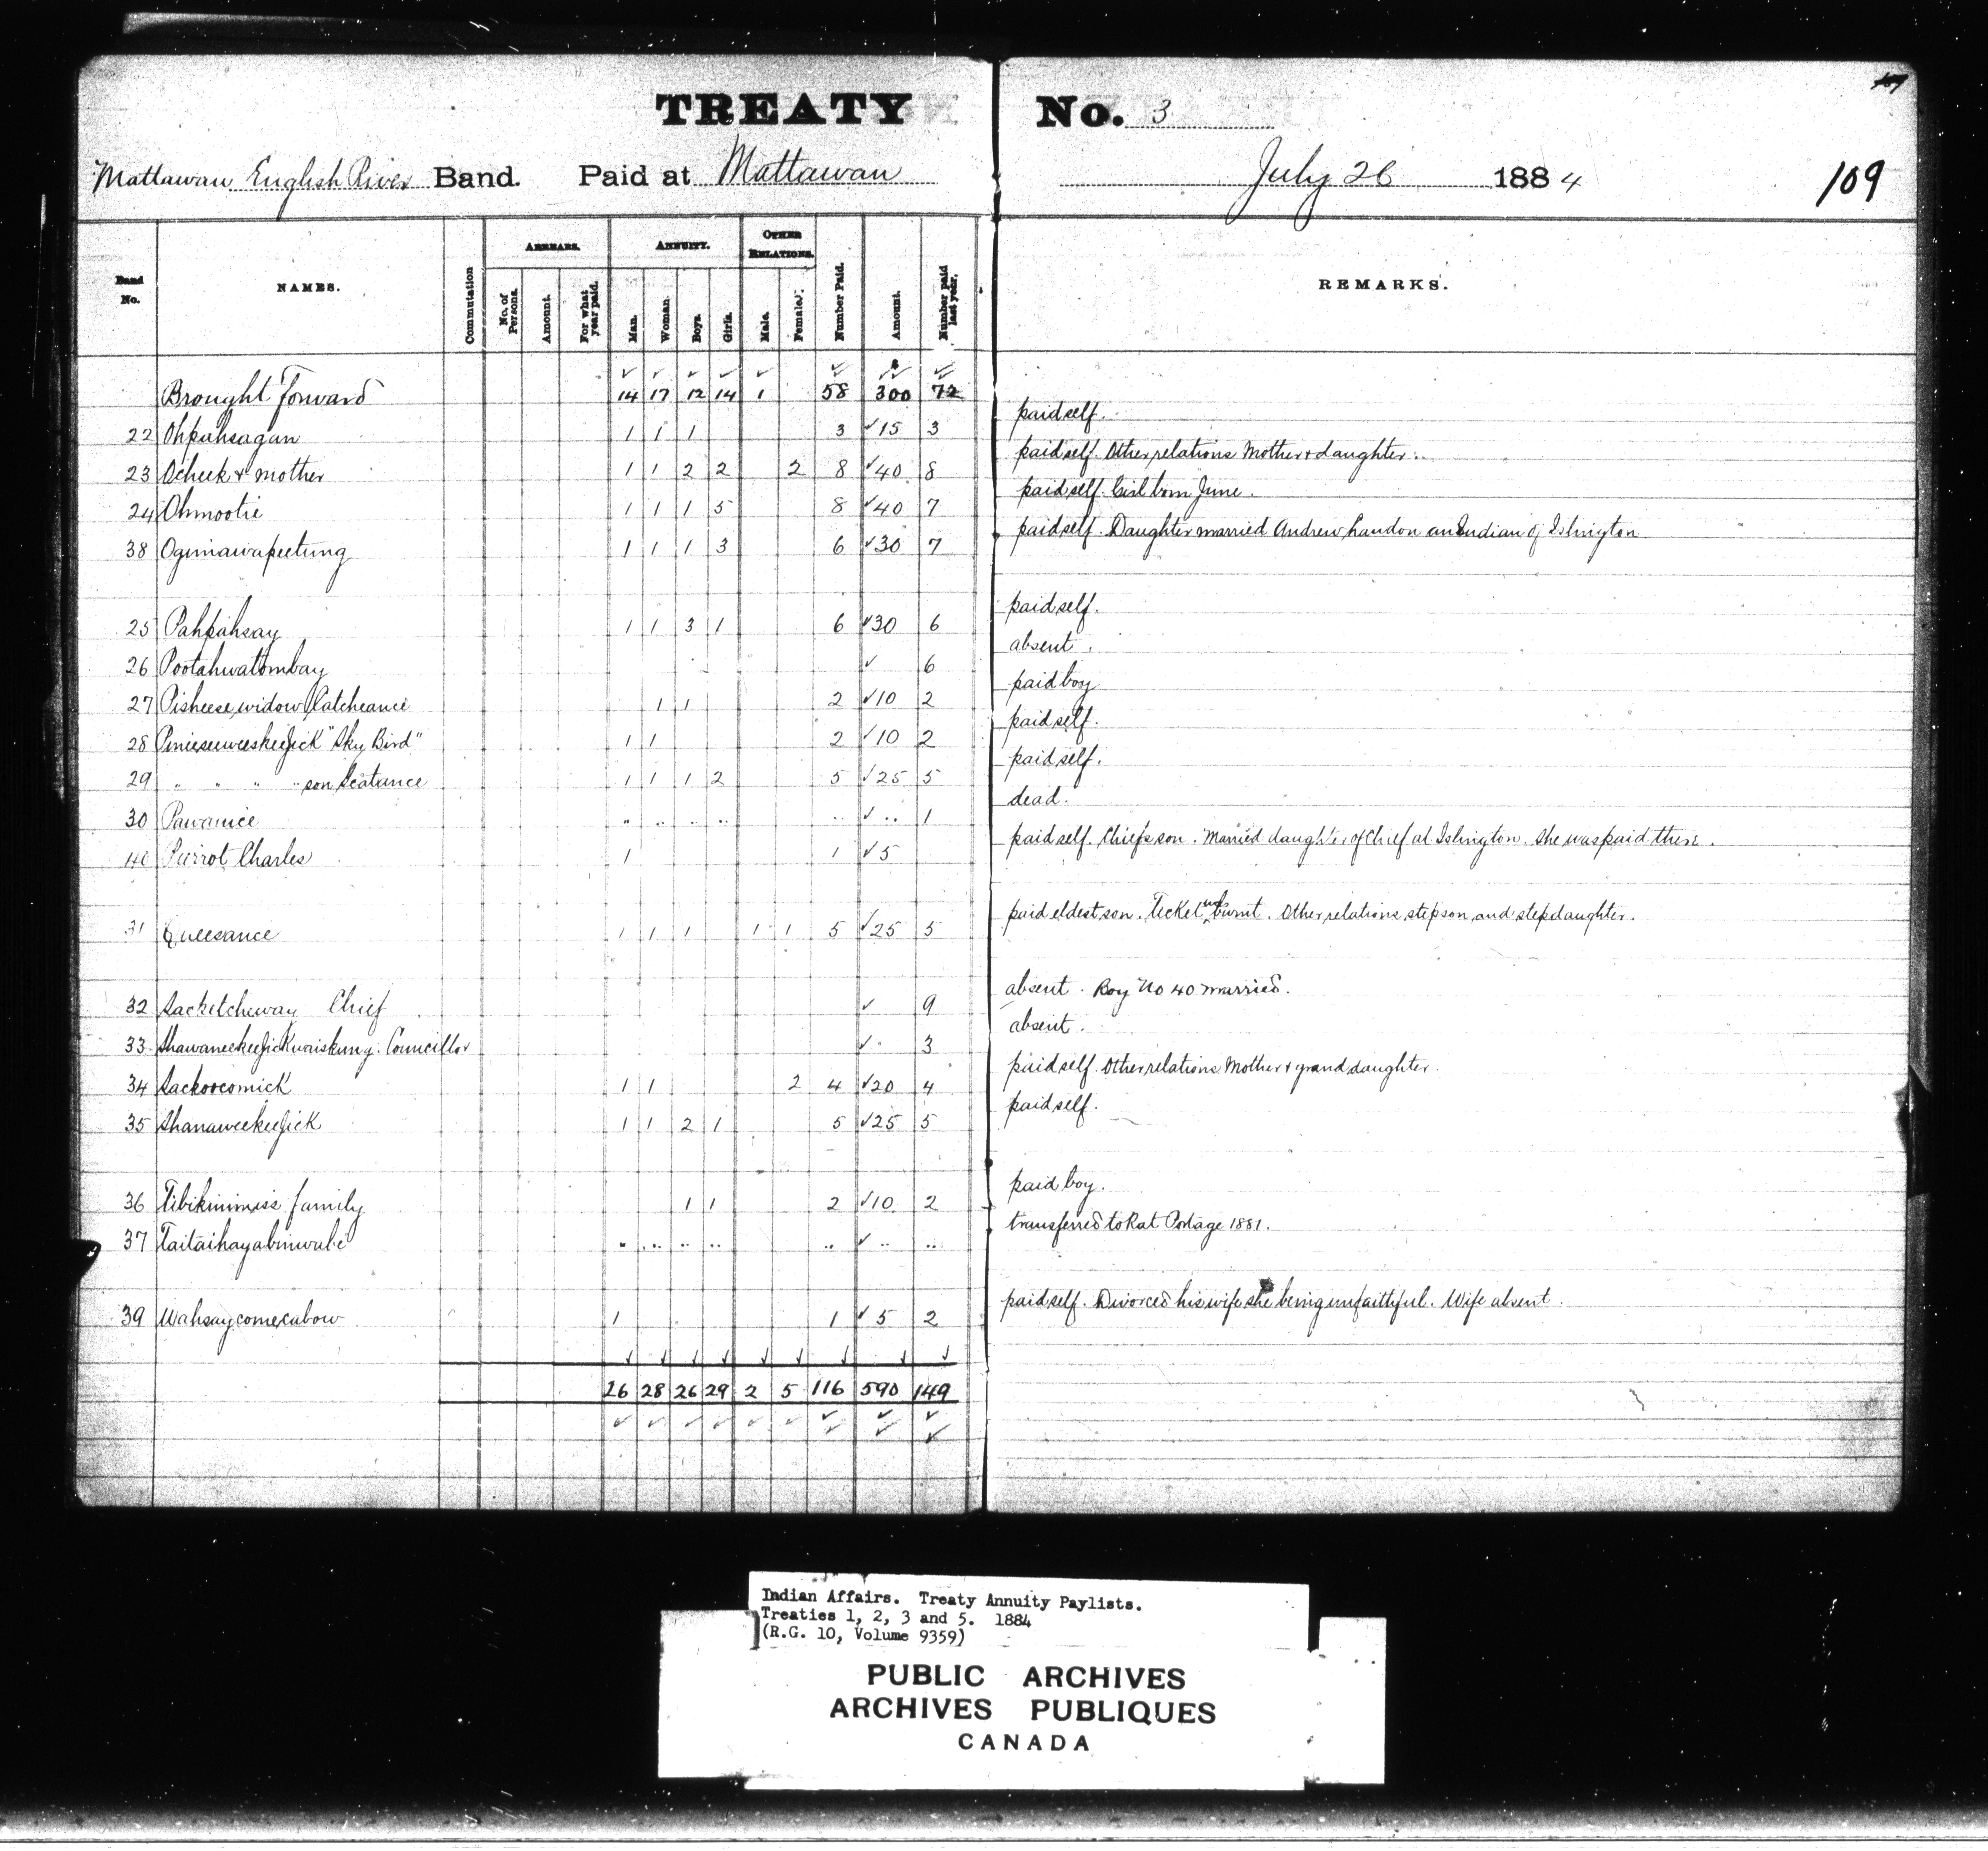 109
TREATY No. 3
Mattawan English River Band. Paid at Mattawan July 26 1884 109
Band No. NAMES. Commutation ARREARS. No. of Persons. Amount. For what year paid. ANNUITY. Man. Woman. Boys. Girls. OTHER RELATIONS. Male. Female. Number Paid. Amount. Number paid last year. REMARKS.
Brought Forward 14 17 12 14 1 58 300 72
22 Ohpahsagan 1 1 1 3 15 3 paid self.
23 Ocheek & mother 1 1 2 2 2 8 40 8 paid self. Other relations Mother & daughter.
24 Ohmootie 1 1 1 5 8 40 7 paid self. Girl born June.
38 Oginiawapeetung 1 1 1 3 6 30 7 paid self. Daughter married Andrew Landon an Indian of Islington
25 Pahpahsay 1 1 3 1 6 30 6 paid self.
26 Pootahwatombay 6 absent.
27 Pisheese widow Patcheance 1 1 2 10 2 paid boy
28 Pinieseeweeskeejick "Sky Bird" 1 1 2 10 2 paid self.
29 " " " " son Seatance 1 1 1 2 5 25 5 paid self.
30 Pawanice 1 dead.
40 Pierrot Charles 1 1 5 paid self. Chief's son. Married daughter of Chief at Islington. She was paid there.
31 Queesance 1 1 1 1 1 5 25 5 paid eldest son. Ticket burnt. Other relations, stepson, and stepdaughter.
32 Sacketcheway Chief 9 absent. Boy No 40 married.
33 Shawaneekeejickwaiskung. Councillor 3 absent.
34 Sackoocomick 1 1 2 4 20 4 paid self. Other relations Mother & grand daughter.
35 Shanaweekeejick 1 1 2 1 5 25 5 paid self.
36 Tibikinimis's family 1 1 2 10 2 paid boy.
37 Taitaihayabinwabe transferred to Rat Portage 1881.
39 Wahsaycomecabow 1 1 5 2 paid self. Divorced his wife she being unfaithful. Wife absent.
26 28 26 29 2 5 116 590 149
Indian Affairs. Treaty Annuity Paylists.
Treaties 1, 2, 3 and 5. 1884
(R.G. 10, Volume 9359)
PUBLIC ARCHIVES
ARCHIVES PUBLIQUES
CANADA